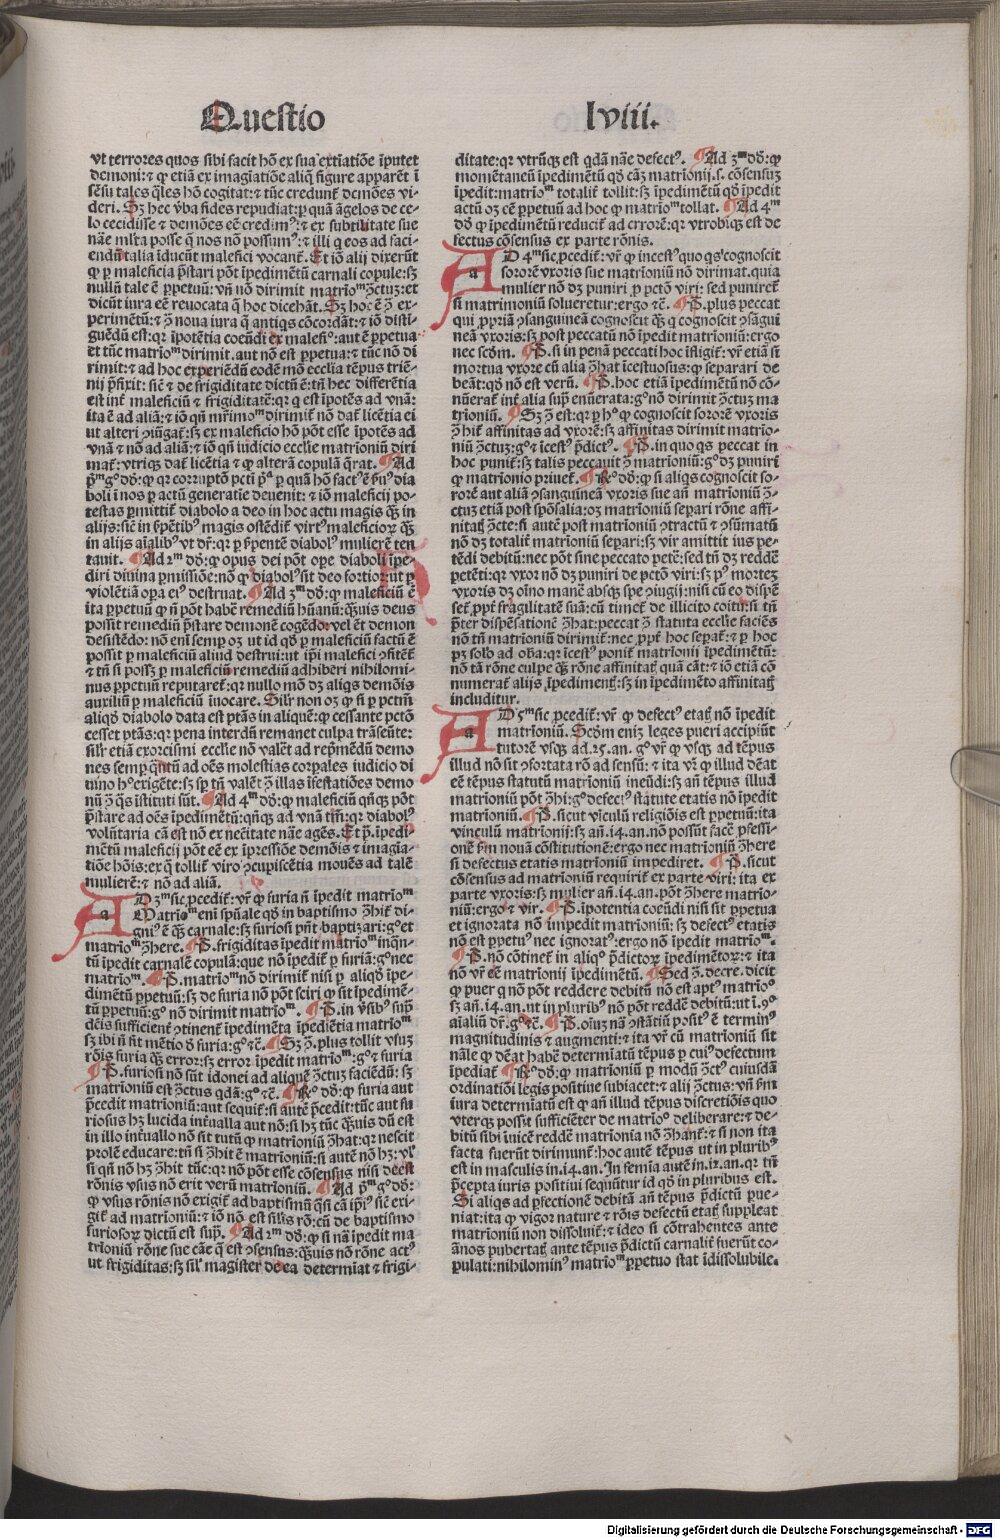 Questio
lviii.
vt terrores quos sibi facit hō ex sua extīatiōe īputet
demoni: ⁊ ꝙ etiā ex imagīatiōe aliq̄ figure apparēt ī
sēsu tales q̄les hō cogitat: ⁊ tūc credunt᷑ demōes vi-
deri. Sꝫ hec v̓ba fides repudiat: ꝑ quā āgelos de ce-
lo cecidisse ⁊ demōes eē credimꝰ: ⁊ ex subtilitate sue
nāe ml̓ta posse q̄ nos nō possumꝰ: ⁊ illi q̄ eos ad faci-
endū talia īducūt malefici vocant᷑. Et iō alij dixerūt
ꝙ ꝑ maleficia p̄stari pōt īpedimētū carnali copule: sꝫ
nullū tale ē ꝑpetuū: vn̄ nō dirimit matrioᵐ ꝯtctuꝫ: et
dicūt iura eē reuocata q̄ hoc dicebāt. Sꝫ hoc ē ꝯ̄ ex-
perimētū: ⁊ ꝯ̄ noua iura q̄ antiqs cōcordāt: ⁊ iō disti-
guēdū est: qꝛ īpotētia coeūdi ex malefiᵒ: aut ē ꝑpetua
et tūc matrioᵐ dirimit. aut nō est ꝑpetua: ⁊ tūc nō di
rimit: ⁊ ad hoc experiēdū eodē mō ecclīa tēpus triē-
nij p̄fixit: sic̄ ⁊ de frigiditate dictū ē: tn̄ hec differētia
est int᷑ maleficiū ⁊ frigiditatē: qꝛ q est īpotēs ad vnā:
ita ē ad aliā: ⁊ iō qn̄ mr̄imoᵐ dirimit᷑ nō dat᷑ licētia ei
ut alteri ꝯiūgat᷑: sꝫ ex maleficio hō pōt esse īpotēs ad
vnā ⁊ nō ad aliā: ⁊ iō qn̄ iudicio ecclīe matrioniū diri
mat᷑: vtriqꝫ dat᷑ licētia ⁊ ꝙ alterā copulā q̄rat. ¶ Ad
p̄ᵐ gᵒ dō: ꝙ qꝛ corruptō pcti p̄ᵃ ꝑ quā hō factꝰ ē ẜuꝰ dia
boli ī nos ꝑ actū generatiōe deuenit: ⁊ iō maleficij po-
testas ꝑmittit᷑ diabolo a deo in hoc actu magis q̄ꝫ in
alijs: sic̄ in ẜpētibꝰ magis ostēdit᷑ virtꝰ maleficioꝝ q̄ꝫ
in alijs aīalibꝰ vt dr̄: qꝛ ꝑ ẜpentē diabolꝰ mulierē ten
tauit. ¶ Ad 2ᵐ dō: ꝙ opus dei pōt ope diaboli īpe-
diri diuina ꝑmissiōe: nō ꝙ diabolꝰ sit deo fortior: ut ꝑ
violētiā oꝑa eiꝰ destruat. ¶ Ad 3ᵐ dō: ꝙ maleficiū ē
ita ꝑpetuū ꝙ n̄ pōt habē remediū hūanū: q̄uis deus
possit remediū p̄stare demonē cogēdo: vel et̄ demon
desistēdo: nō enī semꝑ oꝫ ut id qd̓ ꝑ maleficiū factū ē
possit ꝑ maleficiū aliud destrui: ut ip̄i malefici ꝯfitēt᷑
⁊ tn̄ si possꝫ ꝑ maleficiū remediū adhiberi nihilomi-
nus ꝑpetuū reputaret᷑: qꝛ nullo mō dꝫ aliqs demōis
auxiliū ꝑ maleficiū īuocare. Silr̄ non oꝫ ꝙ si ꝑ pctm̄
aliqd̓ diabolo data est ptās in aliquē: ꝙ cessante pctō
cesset ptās: qꝛ pena interdū remanet culpa trāseūte:
silr̄ etiā exorcismi ecclīe nō valēt ad rep̄mēdū demo
nes semꝑ q̄ntū ad oēs molestias corꝑales iudicio di
uino hᵒ exigēte: sꝫ sꝑ tn̄ valēt ꝯ̄ illas īfestatiōes demo
nū ꝯ̄ q̄s īstituti sūt. ¶ Ad 4ᵐ dō: ꝙ maleficiū qn̄qꝫ pōt
p̄stare ad oēs īpedimētū: qn̄qꝫ ad vnā tm̄: qꝛ diabolꝰ
volūtaria cā est nō ex nec̄itate nāe agēs. Et p̄. īpedi-
mētū maleficij pōt eē ex īpressiōe demōis ⁊ imagīa-
tiōe hōis: ex q̄ tollit᷑ viro ꝯcupiscētia mouēs ad talē
mulierē: ⁊ nō ad aliā.
AD 3ᵐ sic ꝓcedit᷑: vr̄ ꝙ furia n̄ īpedit matrioᵐ
Matrioᵐ enī spūale qd̓ in baptismo ꝯ̄hit᷑ di-
gniꝰ ē q̄ꝫ carnale: sꝫ furiosi pn̄t baptizari: gᵒ et
matrioᵐ ꝯ̄here. ¶ P̄. frigiditas īpedit matrioᵐ inqn̄-
tū īpedit carnalē copulā: que nō īpedit᷑ ꝑ furiā: gᵒ nec
matrioᵐ. ¶ P̄. matrioᵐ nō dirimit᷑ nisi ꝑ aliqd̓ īpe-
dimētū ꝑpetuū: sꝫ de furia nō pōt sciri ꝙ sit īpedimē-
tū ꝑpetuū: gᵒ nō dirimit matrioᵐ. ¶ P̄. in v̓sibꝰ sup̄
dc̄is sufficient᷑ ꝯtinent᷑ īpedimēta īpediētia matrioᵐ
sꝫ ibi n̄ fit mētio d̓ furia: gᵒ ⁊c̄. ¶ Sꝫ ꝯ̄. plus tollit vsuꝫ
rōis furia q̄ꝫ error: sꝫ error īpedit matrioᵐ: gᵒ ⁊ furia
¶ P̄. furiosi nō sūt idonei ad aliquē ꝯ̄ctuꝫ faciēdū: sꝫ
matrioniū est ꝯ̄ctus qdā: gᵒ ⁊c̄. ¶ Rᵒ dō: ꝙ furia aut
p̄cedit matrioniū: aut sequit᷑: si autē p̄cedit: tūc aut fu
riosus hꝫ lucida int᷑ualla aut nō: si hꝫ tūc q̄uis dū est
in illo int᷑uallo nō sit tutū ꝙ matrioniū ꝯ̄hat: qꝛ nescit
prolē educare: tn̄ si ꝯ̄hit ē matrioniū: si autē nō hꝫ: vl̓
si qn̄ nō hꝫ ꝯ̄hit tūc: qꝛ nō pōt esse cōsensus nisi deest
rōnis vsus nō erit verū matrioniū. ¶ Ad p̄ᵐ gᵒ dō:
ꝙ vsus rōnis nō exigit᷑ ad baptismū qsi cā ip̄iꝰ sic̄ exi-
git᷑ ad matrioniū: ⁊ iō nō est sil̓is rō: cū de baptismo
furiosoꝝ dictū est sup̄. ¶ Ad 2ᵐ dō: ꝙ si nā īpedit ma
trioniū rōne sue cāe q̄ est ꝯsensus: q̄uis nō rōne actꝰ
ut frigiditas: sꝫ sil̓ magister de ea determīat ⁊ frigi-
ditate: qꝛ vtrūqꝫ est qdā nāe defectꝰ. ¶ Ad 3ᵐ dō: ꝙ
momētaneū īpedimētū qd̓ cāꝫ matrionij. s. cōsensuꝫ
īpedit: matrioᵐ totalit᷑ tollit: sꝫ īpedimētū qd̓ īpedit
actū oꝫ eē ꝑpetuū ad hoc ꝙ matrioᵐ tollat. ¶ Ad 4ᵐ
dō ꝙ īpedimētū reducit᷑ ad errorē: qꝛ vtrobiqꝫ est de
fectus cōsensus ex parte rōnis.
AD 4ᵐ sic ꝓcedit᷑: vr̄ ꝙ incestꝰ quo qs cognoscit
sororē vxoris sue matrioniū nō dirimat. quia
mulier nō dꝫ puniri ꝑ pctō viri: sed puniret᷑
si matrimoniū solueretur: ergo ⁊c̄. ¶ P̄. plus peccat
qui ꝓpriā ꝯsanguineā cognoscit q̄ꝫ q cognoscit ꝯsāgui
neā vxoris: sꝫ post peccatū nō īpedit matrioniū: ergo
nec scd̓m. ¶ P̄. si in penā peccati hoc īfligit᷑: vr̄ etiā si
mortua vxore cū alia ꝯ̄hat īcestuosus: ꝙ separari de
beāt: qd̓ nō est verū. ¶ P̄. hoc etiā īpedimētū nō cō-
nūerat᷑ int᷑ alia sup̄ enūerata: gᵒ nō dirimit ꝯ̄ctuꝫ ma
trioniū. ¶ Sꝫ ꝯ̄ est: qꝛ ꝑ hᵒ ꝙ cognoscit sororē vxoris
ꝯ̄hit᷑ affinitas ad vxorē: sꝫ affinitas dirimit matrio-
niū ꝯ̄ctuꝫ: gᵒ ⁊ īcestꝰ p̄dictꝰ. ¶ P̄. in quo qs peccat in
hoc punit᷑: sꝫ talis peccauit ꝯ̄ matrioniū: gᵒ dꝫ puniri
ꝙ matrionio priuet᷑. ¶ Rᵒ dō: ꝙ si aliqs cognoscit so-
rorē aut aliā ꝯsanguineā vxoris sue an̄ matrioniū ꝯ̄-
ctuꝫ etiā post spōsalia: oꝫ matrioniū sepāri rōne affi-
nitatꝭ ꝯ̄cte: si autē post matrioniū ꝯtractū ⁊ ꝯsūmatū
nō dꝫ totalit᷑ matrioniū separi: sꝫ vir amittit ius pe-
tēdi debitū: nec pōt sine peccato petē: sed tn̄ dꝫ reddē
petēti: qꝛ vxor nō dꝫ puniri de pctō viri: sꝫ pꝰ morteꝫ
vxoris dꝫ oīno manē absqꝫ spe ꝯiugij: nisi cū eo dispē
set᷑ ꝓpt᷑ fragilitatē suā: cū timet᷑ de illicito coitu: si tn̄
p̄ter dispēsationē ꝯ̄hat: peccat ꝯ̄ statuta ecclīe faciēs
nō tn̄ matrioniū dirimit: nec ꝓpt᷑ hoc sepat᷑: ⁊ ꝑ hoc
pꝫ solō ad oba: qꝛ īcestꝰ ponit᷑ matrionij īpedimētū:
nō tā rōne culpe q̄ꝫ rōne affinitatꝭ quā cāt: ⁊ iō etiā cō
numerat᷑ alijs īpedimentꝭ: sꝫ in īpedimēto affinitatꝭ
includitur.
AD 5ᵐ sic ꝓcedit᷑: vr̄ ꝙ defectꝰ etatꝭ nō īpedit
matrioniū. Scd̓m eniꝫ leges pueri accipiūt
tutorē vsqꝫ ad. 25. an. gᵒ vr̄ ꝙ vsqꝫ ad tēpus
illud nō sit ꝯfortata rō ad sensū: ⁊ ita vr̄ ꝙ illud dēat
eē tēpus statutū matrioniū ineūdi: sꝫ an̄ tēpus illud
matrioniū pōt ꝯ̄hi: gᵒ defectꝰ statute etatis nō īpedit
matrioniū. ¶ P̄. sicut viculū religiōis est ꝑpetuū: ita
vinculū matrionij: sꝫ an̄. 14. an. nō possūt facē ꝓfessi-
onē ẜm nouā cōstitutionē: ergo nec matrioniū ꝯ̄here
si defectus etatis matrioniū impediret. ¶ P̄. sicut
cōsensus ad matrioniū requirit᷑ ex parte viri: ita ex
parte vxoris: sꝫ mulier an̄. 14. an. pōt ꝯ̄here matrio-
niū: ergo ⁊ vir. ¶ P̄. īpotentia coeūdi nisi sit ꝑpetua
et ignorata nō impedit matrioniū: sꝫ defectꝰ etatis
nō est ꝑpetuꝰ nec ignoratꝰ: ergo nō īpedit matrioᵐ.
¶ P̄. nō cōtinet᷑ in aliqᵒ p̄dictoꝝ īpedimētoꝝ: ⁊ ita
nō vr̄ eē matrionij īpedimētū. ¶ Sed ꝯ̄. decre. dicit
ꝙ puer q nō pōt reddere debitū nō est aptꝰ matrioᵒ
sꝫ an̄. 14. an. ut in pluribꝰ nō pōt reddē debitū: ut ī. 9ᵒ
aīaliū dr̄. gᵒ ⁊c̄. ¶ P̄. oīuꝫ nā ꝯstātiū positꝰ ē terminꝰ
magnitudinis ⁊ augmenti: ⁊ ita vr̄ cū matrioniū sit
nāle ꝙ dēat habē determīatū tēpus ꝑ cuiꝰ defectum
īpediat᷑. ¶ Rᵒ dō: ꝙ matrioniū ꝑ modū ꝯ̄ctꝰ cuiusdā
ordinatiōi legis positiue subiacet: ⁊ alij ꝯ̄ctus: vn̄ ẜm
iura determīatū est ꝙ an̄ illud tēpus discretiōis quo
vterqꝫ possit sufficiēter de matrioᵒ deliberare: ⁊ de-
bitū sibi īuicē reddē matrionia nō ꝯ̄hant᷑: ⁊ si non ita
facta fuerūt dirimunt᷑: hoc autē tēpus ut in pluribꝰ
est in masculis in. 14. an. In femīa autē in. 12. an. qꝛ tn̄
p̄cepta iuris positiui sequūtur id qd̓ in pluribus est.
Si aliqs ad ꝑfectionē debitā an̄ tēpus p̄dictū ꝑue-
niat: ita ꝙ vigor nature ⁊ rōis defectū etatꝭ suppleat
matrioniū non dissoluit᷑: ⁊ ideo si cōtrahentes ante
ānos pubertatꝭ ante tēpus p̄dictū carnalit᷑ fuerūt co-
pulati: nihilominꝰ matrioᵐ ꝑpetuo stat īdissolubile.
Digitalisierung gefördert durch die Deutsche Forschungsgemeinschaft - DFG